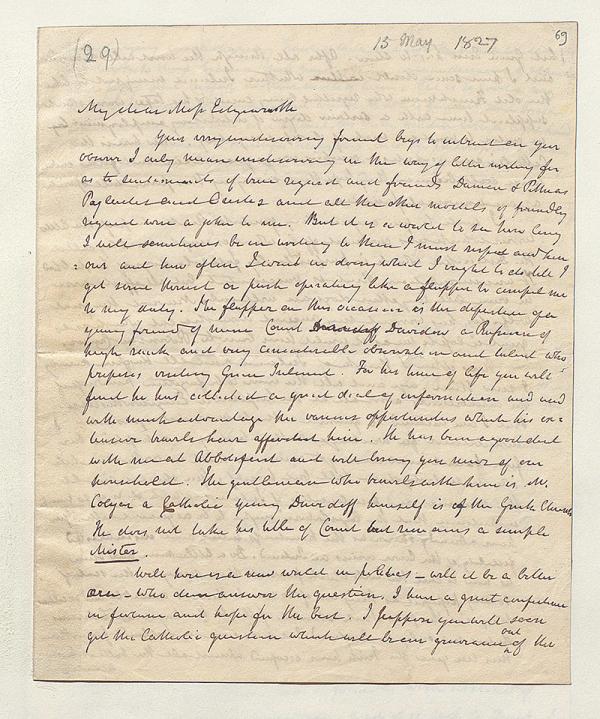 (29)
15 May 1827
69
My dear Miss Edgeworth
Your very undeserving friend begs to intrude on your
observe I only mean undeserving in the way of letter writing for
as to sentiments of true regard and friends Damon & Pythias
Pylades and Orestes and all the other models of friendly
regard were a joke to me. But it is a wonder to see how long
I will sometimes be in writing to them I must respect and hon
=our and how often I want in doing what I ought to do till I
get some thrust or push operating like a flapper to compel me
to my duty. The flapper on this occasion is the departure of a
young friend of mine Count Davidow a Russian of
high rank and very considerable observation and talent who
proposes visiting Green Ireland. For his time of life you will
find he has collected a great deal of information and used
with much advantage the various opportunities which his ex=
tensive travels have afforded him. He has been a good deal
with me at Abbotsford and will bring you news of our
household. The gentleman who travels with him is Mr.
Colyar a Catholic young Davidoff himself is of the Greek Church
He does not take his title of Count but remains a simple
Mister.
Well here is a new world in politics - will it be a better
one - who can answer the question. I have a great confidence
in fortune and hope for the best. I suppose you will soon
get the Catholic question which will be one grievance out of the